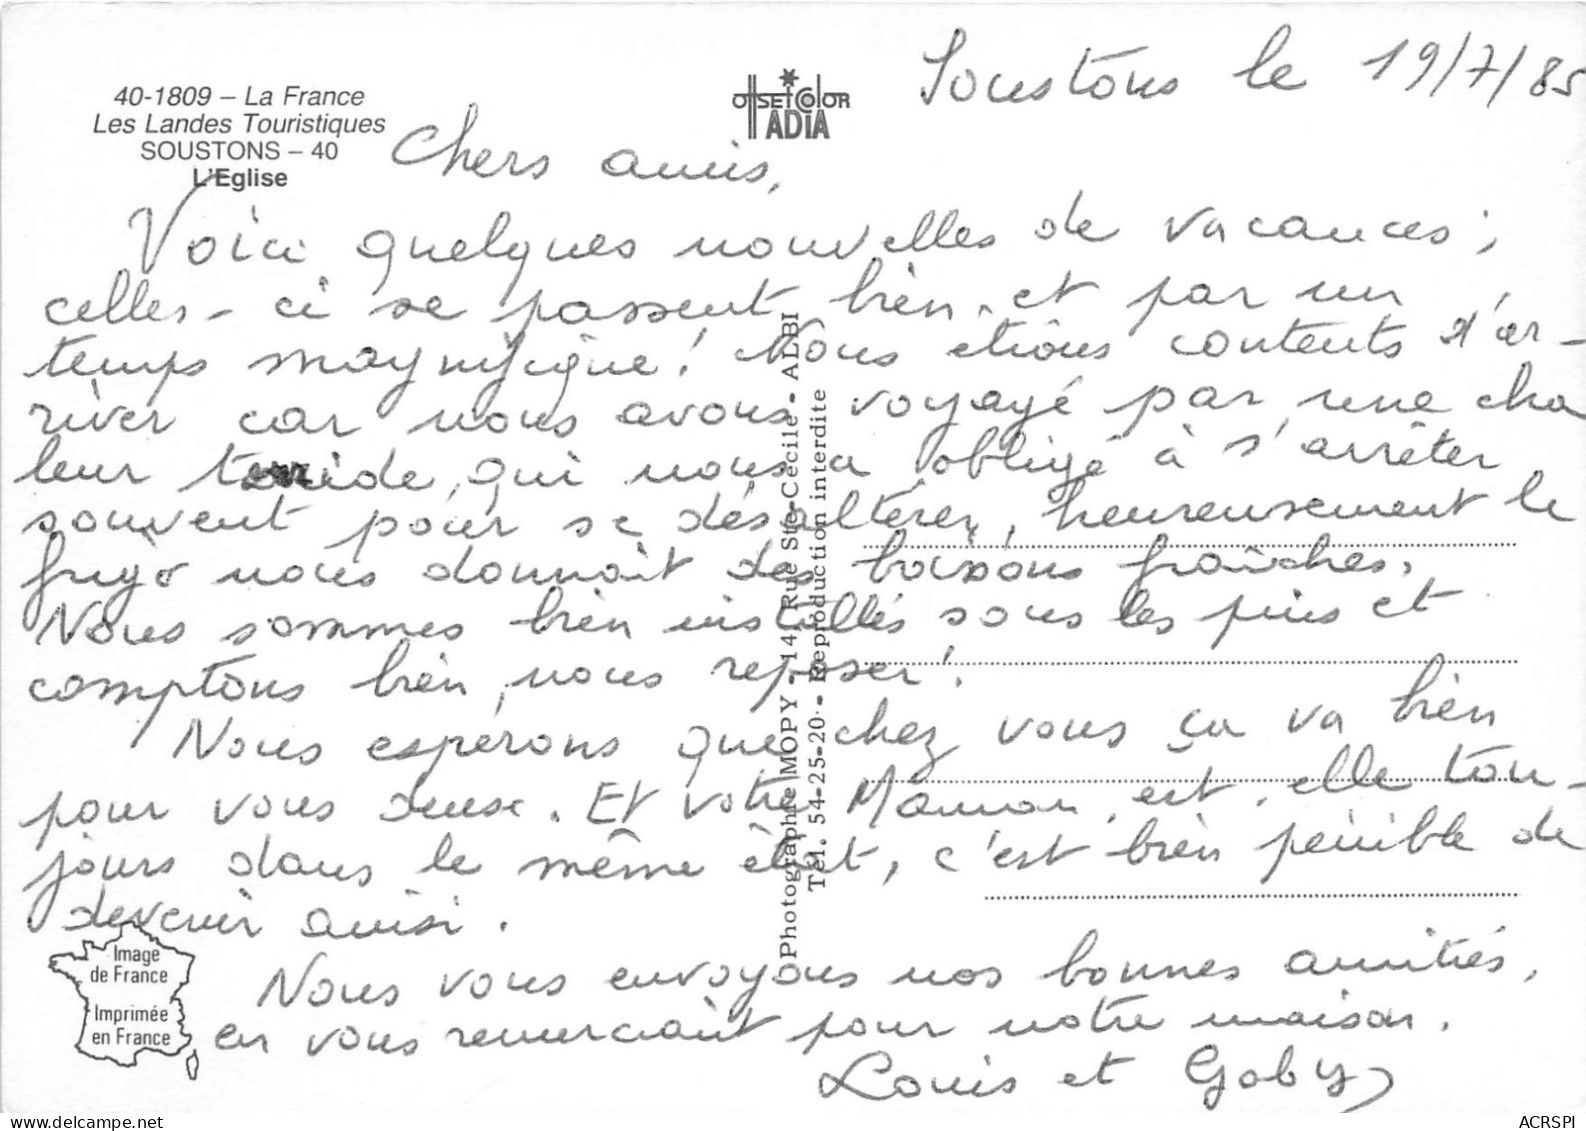 40-1809 – La France
Les Landes Touristiques
SOUSTONS – 40
L'Eglise
OffSETCOlOR
ADIA
Soustons le 19/7/85
Chers amis,
Voici quelques nouvelles de vacances;
celles-ci se passent bien, et par un
temps magnifique! Nous étions contents d'ar-
river car nous avons voyagé par une cha
leur torride, qui nous a obligé à s'arrêter
souvent pour se désaltérer, heureusement le
frigo nous donnait des boissons fraîches.
Nous sommes bien installés sous les pins et
comptons bien nous reposer!
Nous espérons que chez vous ça va bien
pour vous deux. Et votre Maman, est elle tou-
jours dans le même état, c'est bien pénible de
devenir ainsi.
Nous vous envoyons nos bonnes amitiés,
en vous remerciant pour notre maison.
Louis et Goby
Photographie MOPY - 14, Rue Ste-Cécile - ALBI
Tél. 54-25-20 - Reproduction interdite
Image
de France
Imprimée
en France
www.delcampe.net
ACRSPI